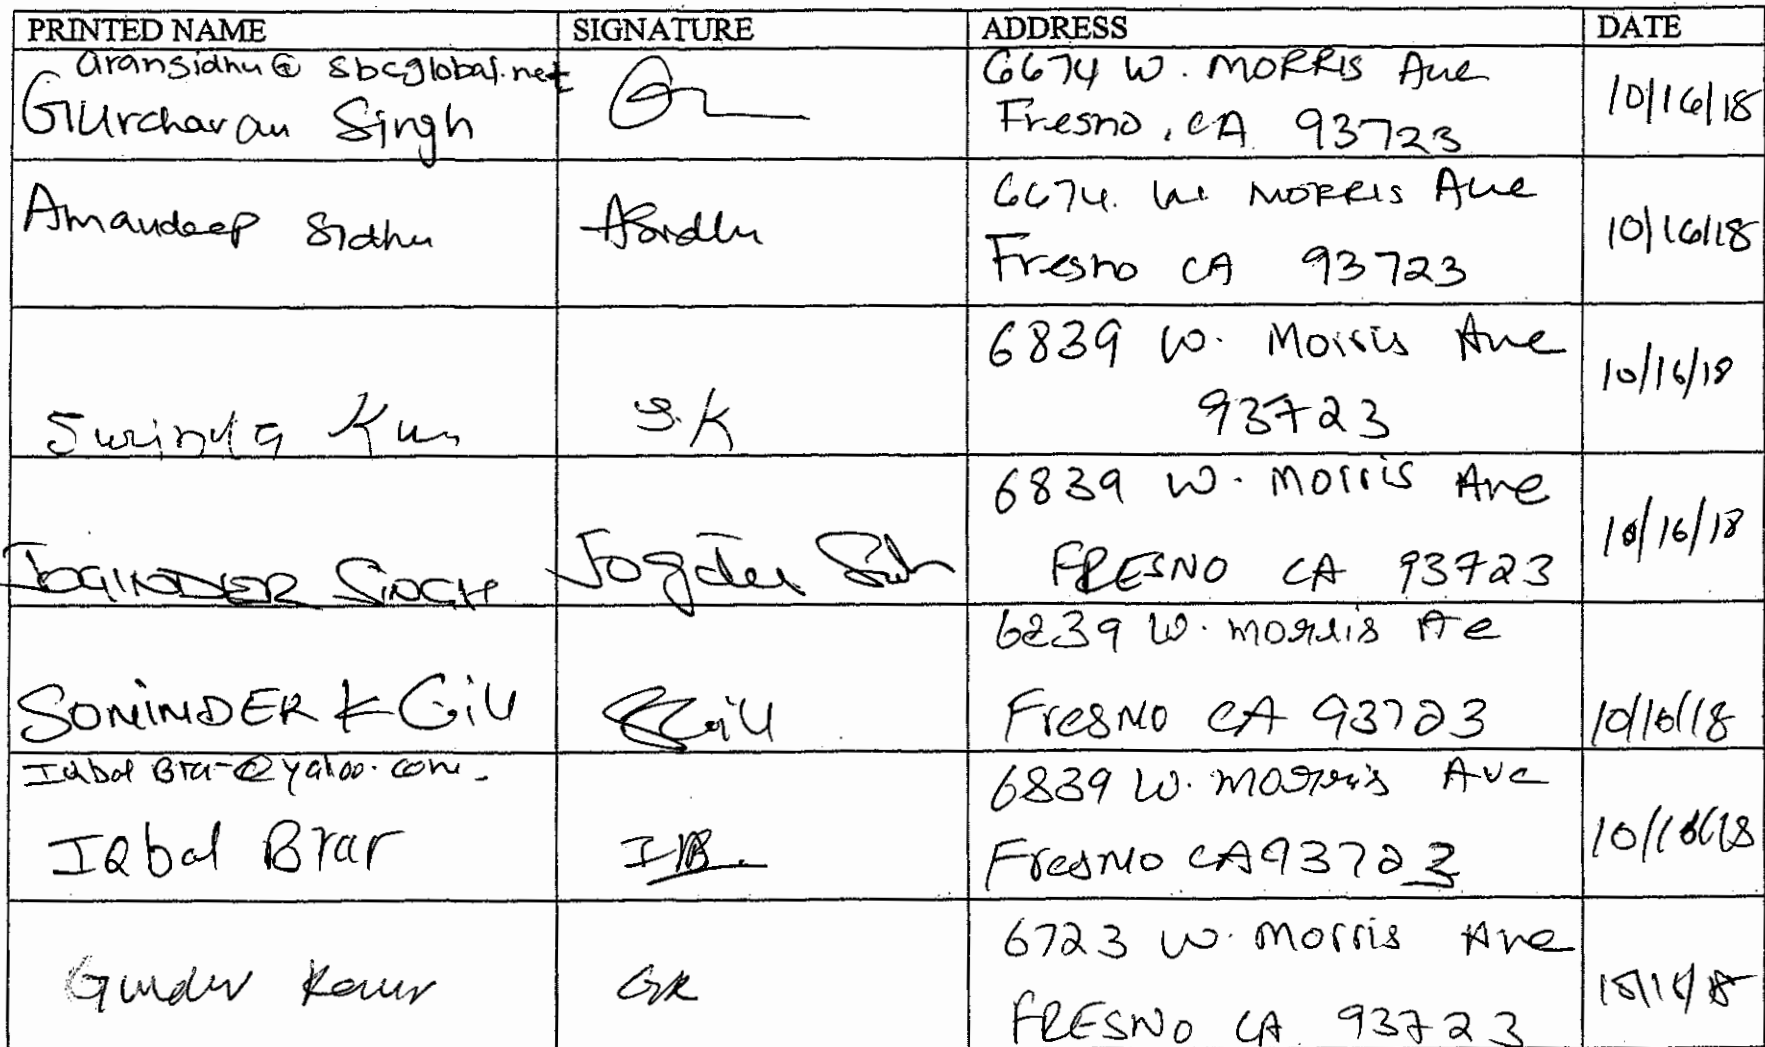 PRINTED NAME SIGNATURE ADDRESS DATE
aransidhu@sbcglobal.net
Gurcharan Singh
6674 W. MORRIS Ave
Fresno, CA 93723
10/16/18
Amandeep Sidhu
ASidhu
6674. W. MORRIS Ave
Fresno CA 93723
10/16/18
S.K
6839 W. Morris Ave
93723
10/16/18
JOGINDER SINGH
6839 W. Morris Ave
FRESNO CA 93723
10/16/18
SONINDER K Gill
SGill
6239 W. Morris Ae
Fresno CA 93723
10/16/18
Iqbal Brar
IB
6839 W. Morris Ave
Fresno CA 93723
10/16/18
Kaur
GK
6723 W. Morris Ave
FRESNO CA 93723